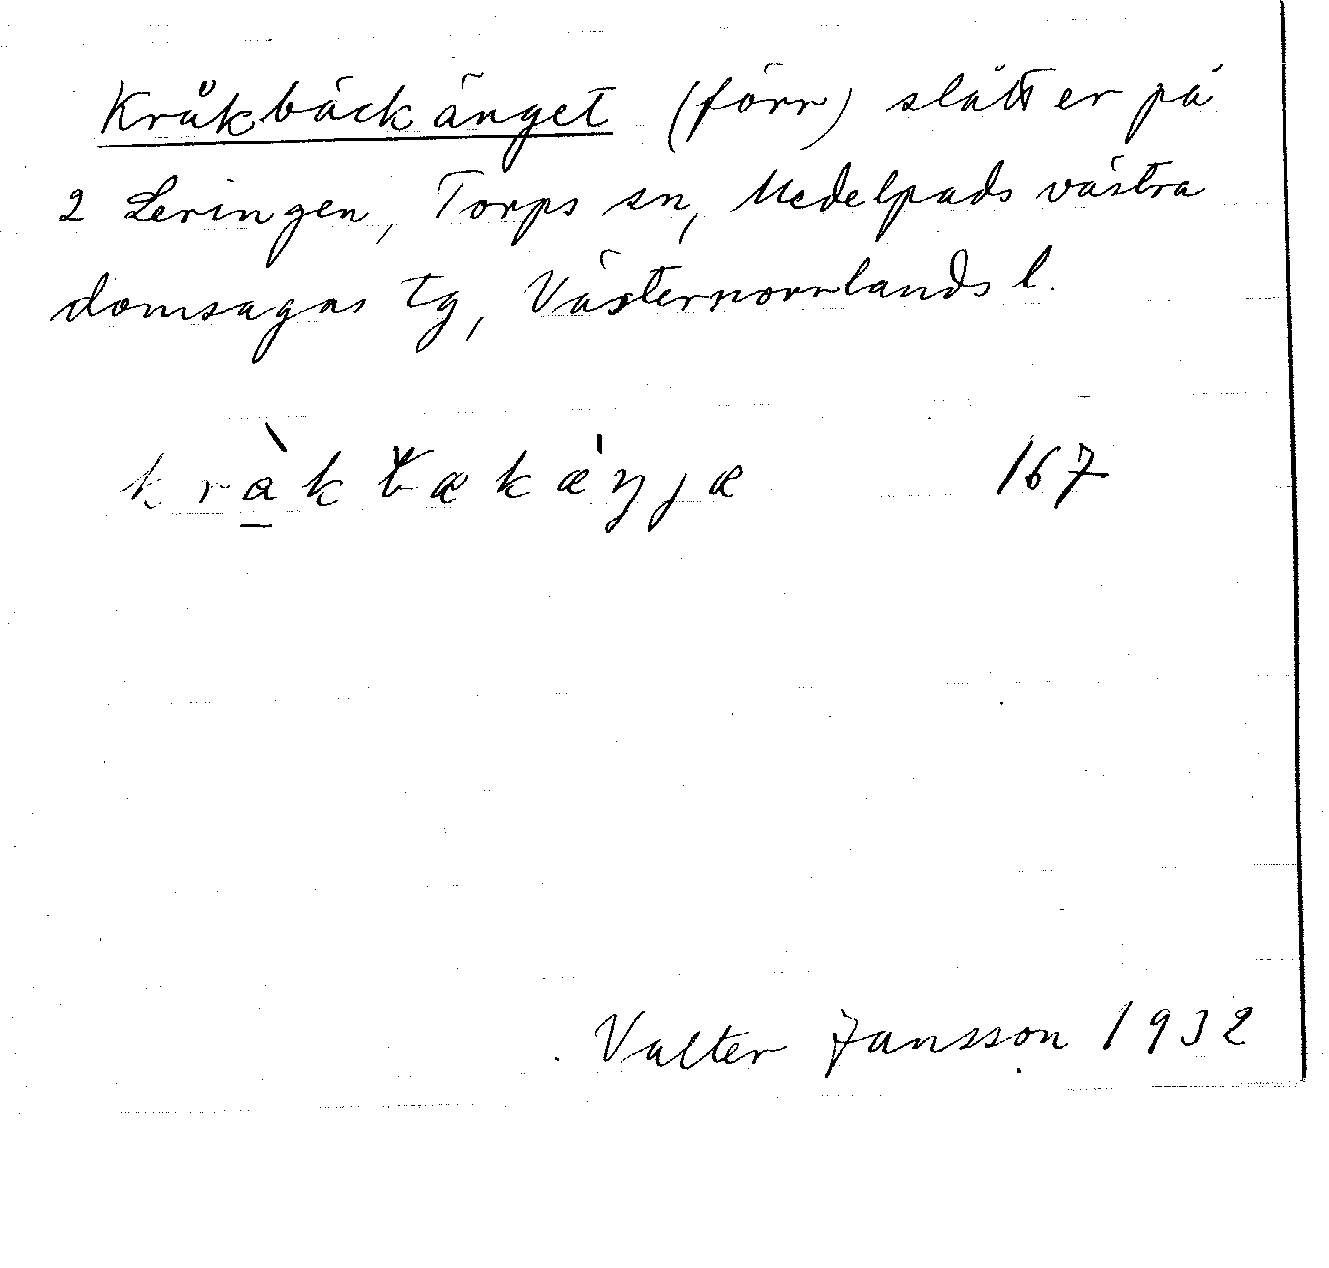 Kråkbäckänget (förr) slåtter på
2 Leringen, Torps sn, Medelpads västra
domsagas tg, Västernorrlands l.
kràkbækæ̍ŋjæ 167
Valter Jansson 1932